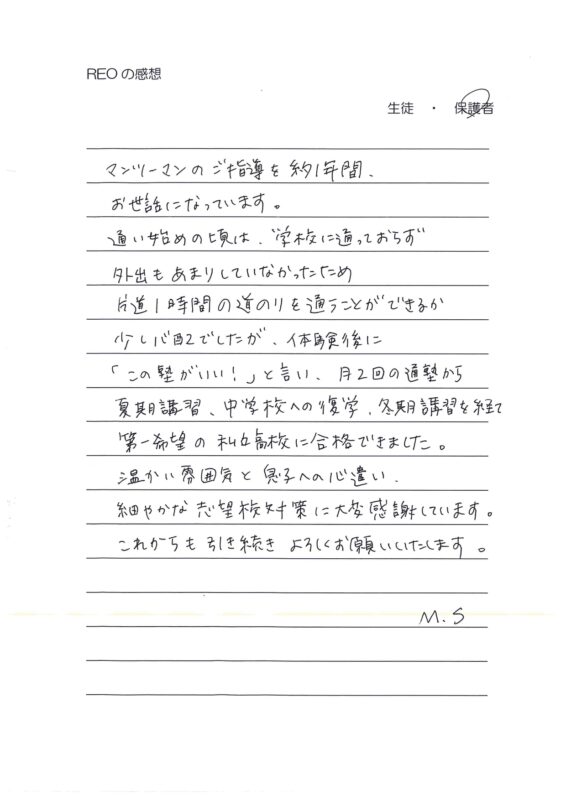 REOの感想
生徒 ・ 保護者
マンツーマンのご指導を約1年間、
お世話になっています。
通い始めの頃は、学校に通っておらず
外出もあまりしていなかったため
片道1時間の道のりを通うことができるか
少し心配でしたが、体験後に
「この塾がいい!」と言い、月2回の通塾から
夏期講習、中学校への復学、冬期講習を経て
第一希望の私立高校に合格できました。
温かい雰囲気と息子への心遣い、
細やかな志望校対策に大変感謝しています。
これからも引き続きよろしくお願いいたします。
M.S